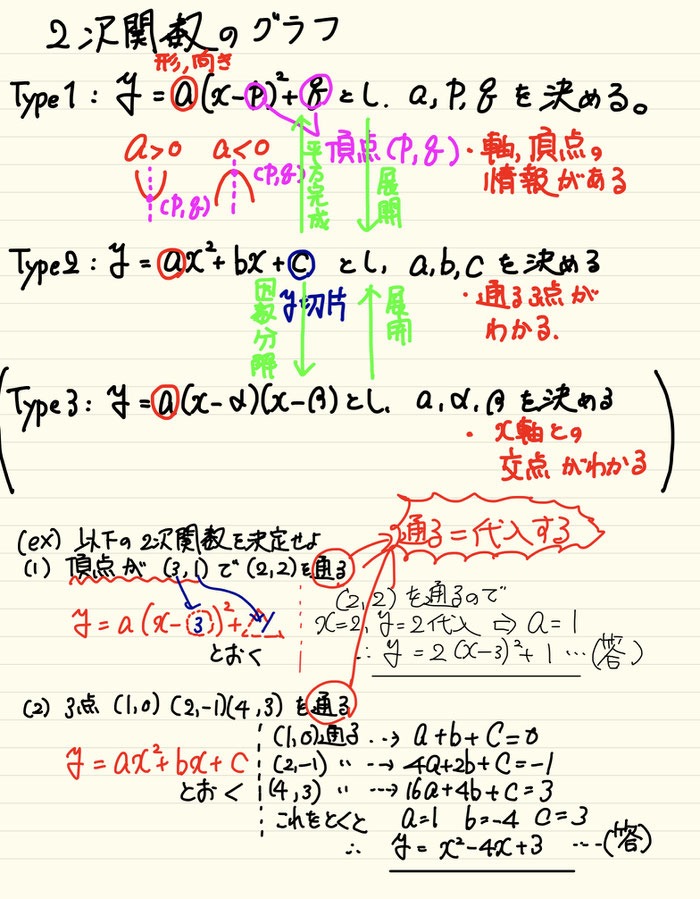 2次関数のグラフ
形,向き
Type1: y=a(x-p)²+q とし. a,p,q を決める。
a>0 a<0
(p,q) (p,q)
頂点(p,q)
・軸,頂点の
情報がある
平方完成
展開
Type2: y=ax²+bx+c とし, a,b,c を決める
y切片
・通る3点が
わかる.
因数分解
展開
(Type3: y=a(x-α)(x-β)とし. a,α,β を決める
・x軸との
交点がわかる)
(ex) 以下の2次関数を決定せよ
通る=代入する
(1) 頂点が (3,1)で(2,2)を通る
y=a(x-3)²+1
とおく
(2,2)を通るので
x=2,y=2代入 ⇨ a=1
∴ y=2(x-3)²+1 …(答)
(2) 3点 (1,0) (2,-1)(4,3) を通る
y=ax²+bx+c
とおく
(1,0)通る ⇢ a+b+c=0
(2,-1) 〃 ⇢ 4a+2b+c=-1
(4,3) 〃 ⇢ 16a+4b+c=3
これをとくと a=1 b=-4 c=3
∴ y=x²-4x+3 …(答)